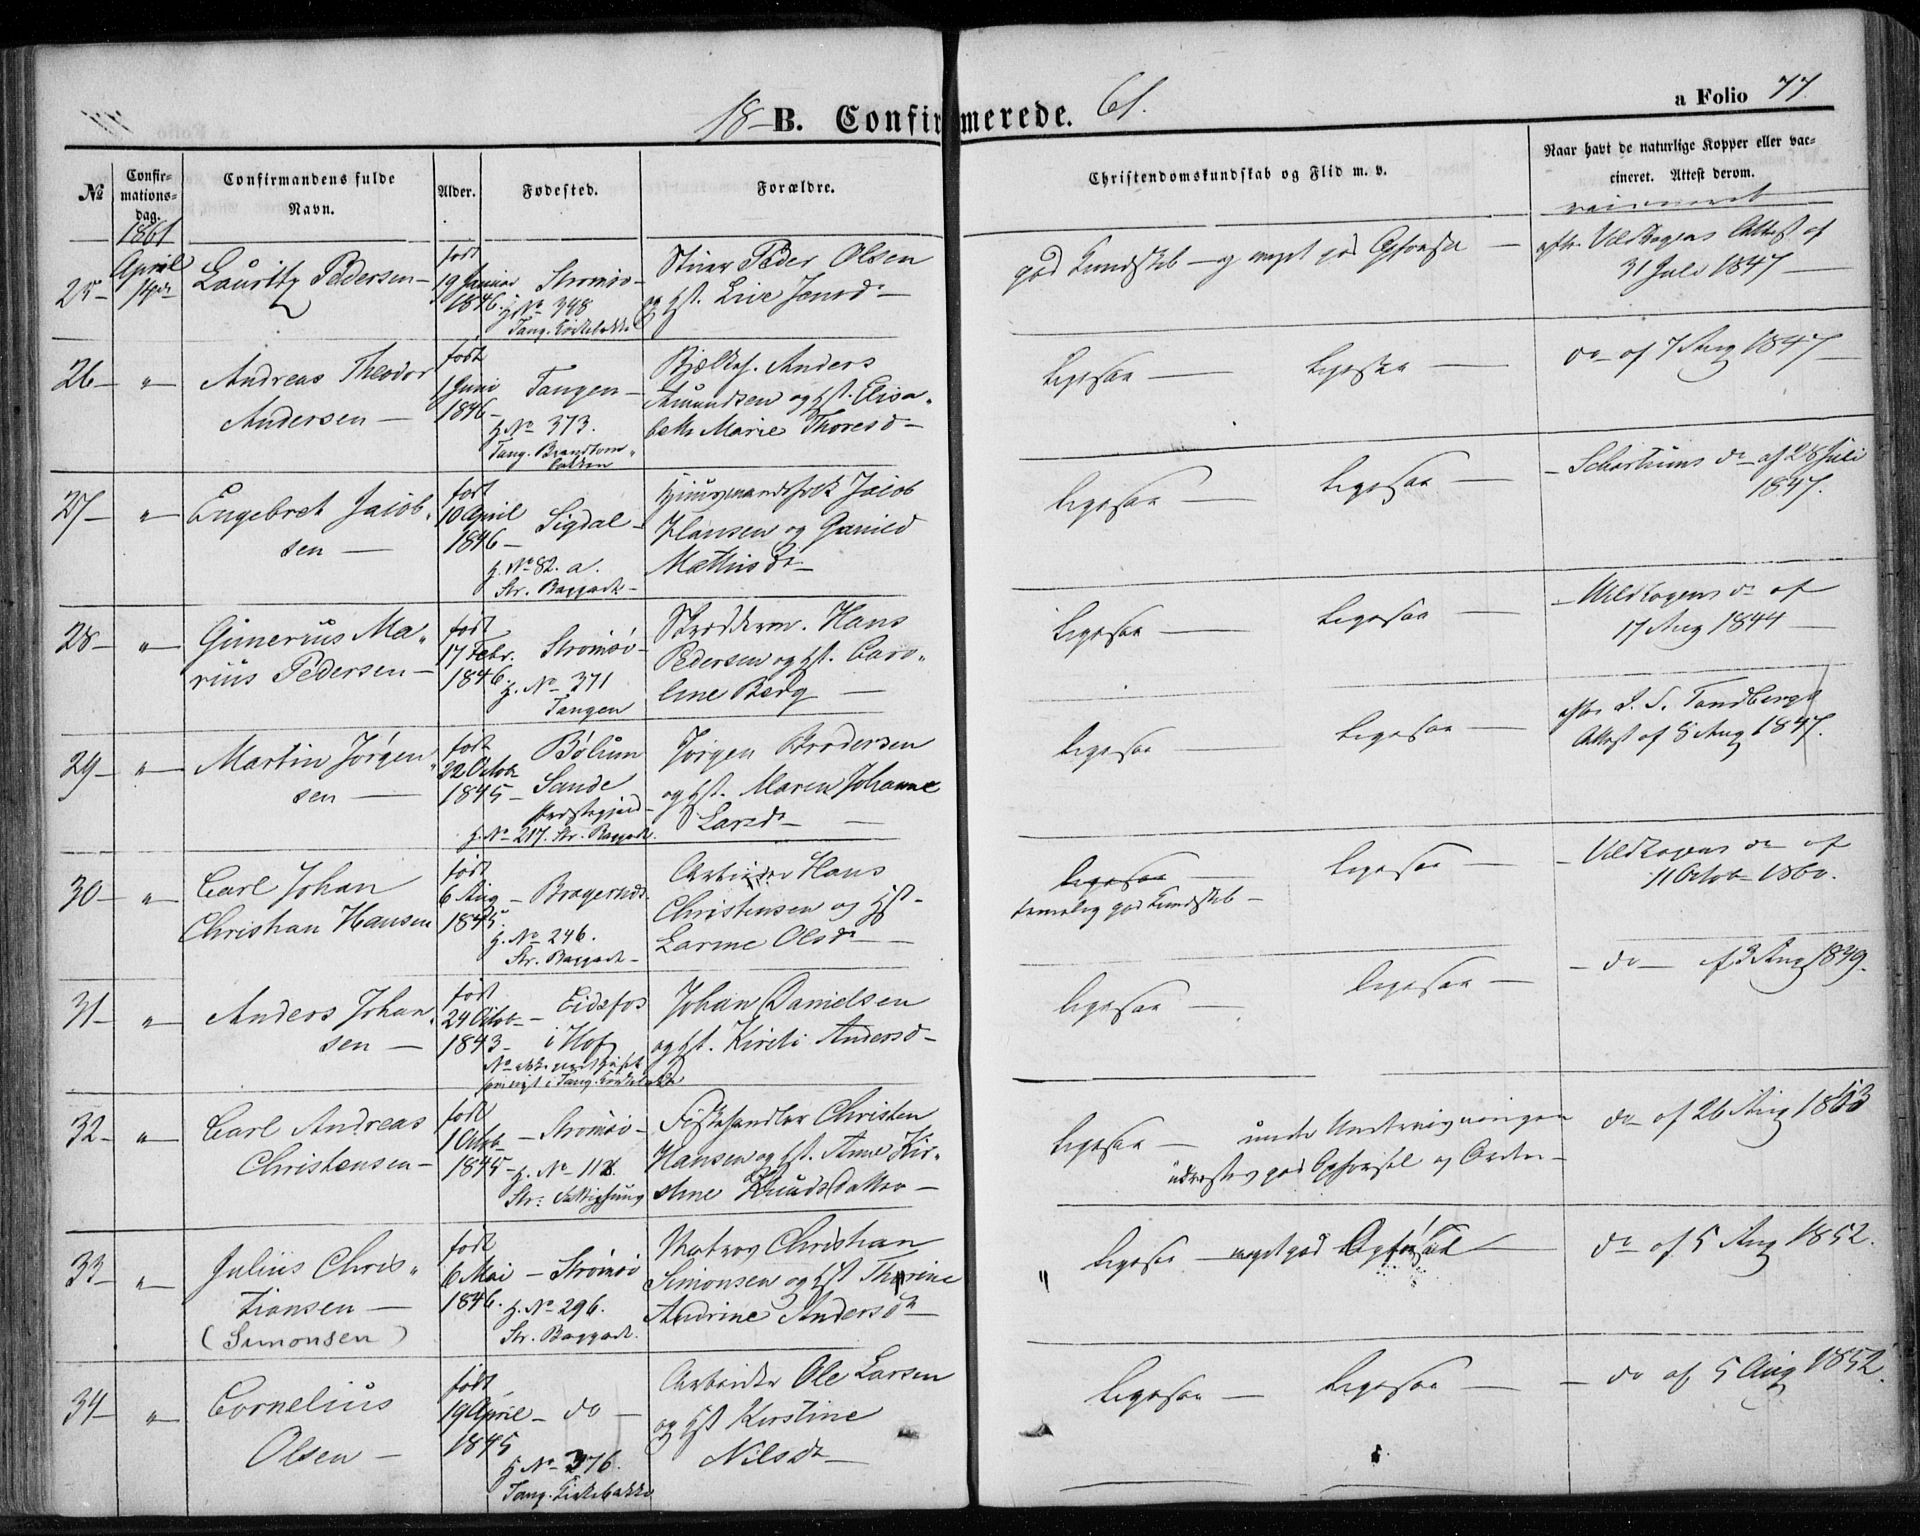 18 B. Confirmerede. 61.
a Folio 77.
№
Confir-
mations-
dag.
Confirmandens fulde
Navn.
Alder.
Fødested.
Forældre.
Christendomskundskab og Flid m. v.
Naar havt de naturlige Kopper eller vac-
cineret. Attest derom.
1861
25- April 14de Lauritz Pedersen-
født
19 Januar
1846.
Strømsø-
H. No 398
Tang. Kirkebakke
Peder Olsen
og Hst. Live Jensd-
god Kundskab og meget god Opførsel -
Vildhagens Attest af
31 Juli 1847-
26- " Andreas Theodor
Andersen-
født
1 Juni
1846-
Tangen-
H. No 373.
Tang.
Anders
Amundsen og Hst. Elisa„
beth Marie Thoresd-
ligesaa - ligesaa -
do af 7 Aug 1847-
27- " Engebret Jacob„
sen-
født
10 April
1846-
Sigdal-
H. No 82. a.
Str. Baggade-
Huusmandsfolk Jacob
Hansen og Gunild
Mathisd-
ligesaa - ligesaa -
- do af 28 Juli
1847.
28- " Gunerius Ma„
rius Pedersen-
født
17 Febr.
1846.
Strømsø-
H. No 371
Tangen
Hans
Pedersen og Hst. Caro„
line Berg-
ligesaa - ligesaa -
- Vildhagens do af
17 Aug 1844-
29- " Martin Jørgen„
sen-
født
22 Octob
1845-
Bølum
Sande
Præstegjeld-
H. No 217. Str. Baggade.
Jørgen Brodersen
og Hst. Maren Johanne
Larsd-
ligesaa - ligesaa -
Tandbergs
Attest af 8 Aug 1847.
30- " Carl Johan
Christian Hansen
født
6 Aug
1845.
- Bragernæs.
H. No 246.
Str. Baggade-
Arbeider Hans
Christensen og Hst.
Larine Olsd-
ligesaa - ligesaa -
temelig god Kundskab-
- Vildhagens do af
11 Octob 1860.
31- " Anders Johan„
sen-
født
24 Octob
1843-
- Eidsfos
i Hof
Johan Danielsen
og Hst. Kirsti Andersd-
ligesaa - ligesaa -
- do af 3 Aug 1849.
32- " Carl Andreas
Christensen-
født
1 Octob
1845-
- Strømsø-
H. No 112.
Fiskehandler Christen
Hansen og Hst. Anne Kir-
stine Knudsdatter-
ligesaa - under Underviisningen
udvist god Opførsel og Orden-
do af 26 Aug 1853
33- " Julius Chris„
tiansen-
(Simonsen)
født
6 Mai
1846.
- Strømsø
H. No 296.
Str. Baggade.
Matros Christian
Simonsen og Hst Thorine
Andrine Andersd-
" ligesaa - meget god Opførsel -
do af 5 Aug 1852.
34- " Cornelius
Olsen-
født
19 April
1845
- do-
H No 376.
Tang. Kirkebakke
Arbeider Ole Larsen
og Hst Kirstine
Nilsd-
ligesaa - ligesaa -
- do af 5 Aug 1852.